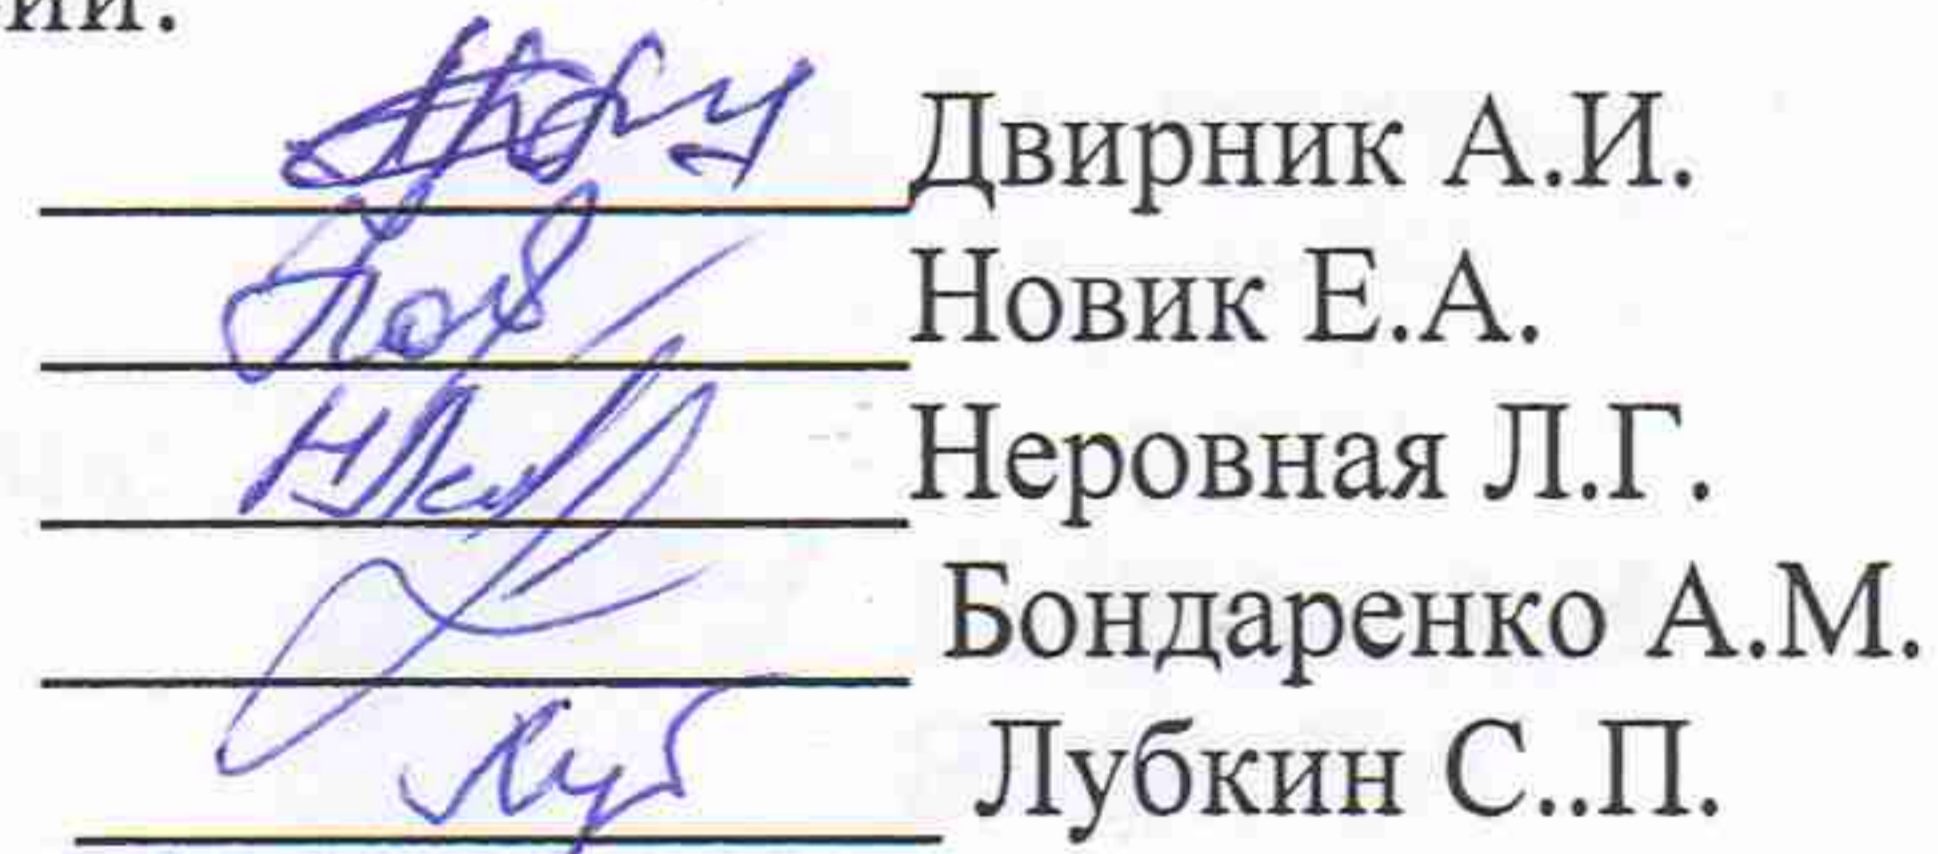 ии.
Двирник А.И.
Новик Е.А.
Неровная Л.Г.
Бондаренко А.М.
Лубкин С..П.